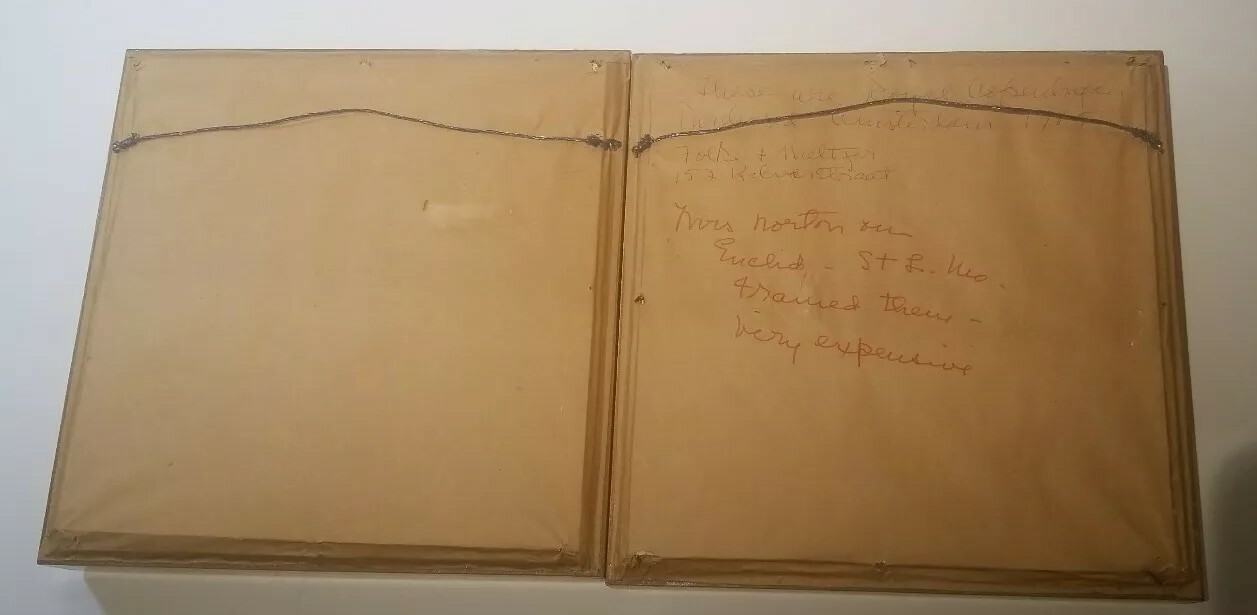 These are Royal Copenhagen
Amsterdam
Folk & Meltzer
157 Kalverstraat
Mrs Norton on
Euclid, - St L. Mo.
framed them -
Very expensive